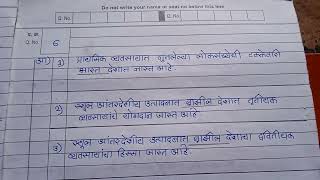 Do not write your name or seat no below this line
Q. No.
Q. No.
प्र. क्र.
Q. No.
6
अ) 1) प्राथमिक व्यवसायात गुंतलेल्या लोकसंख्येची टक्केवारी
भारत देशात जास्त आहे.
2) स्थूल आंतरदेशीय उत्पादनात ब्राझील देशात तृतीयक
व्यवसायांचे योगदान जास्त आहे.
3) स्थूल आंतरदेशीय उत्पादनात ब्राझील देशाचा द्वितीयक
व्यवसायांचा हिस्सा जास्त आहे.